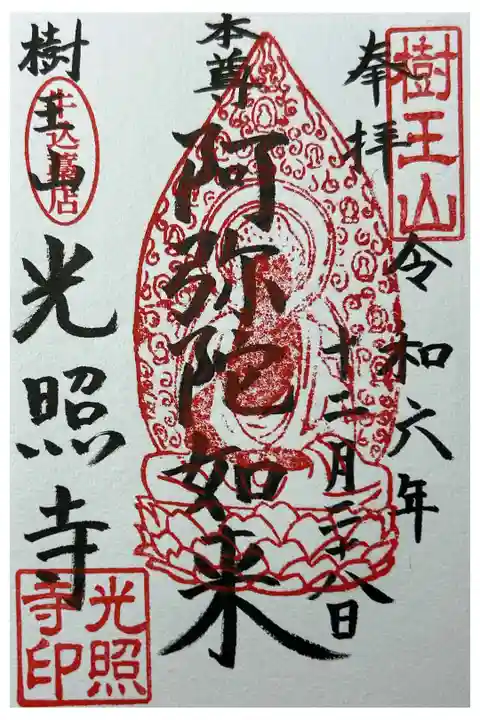 樹王山
奉拝
令和六年
十二月二十八日
本尊
阿弥陀如来
樹王山
牛込藁店
光照寺
光照寺印